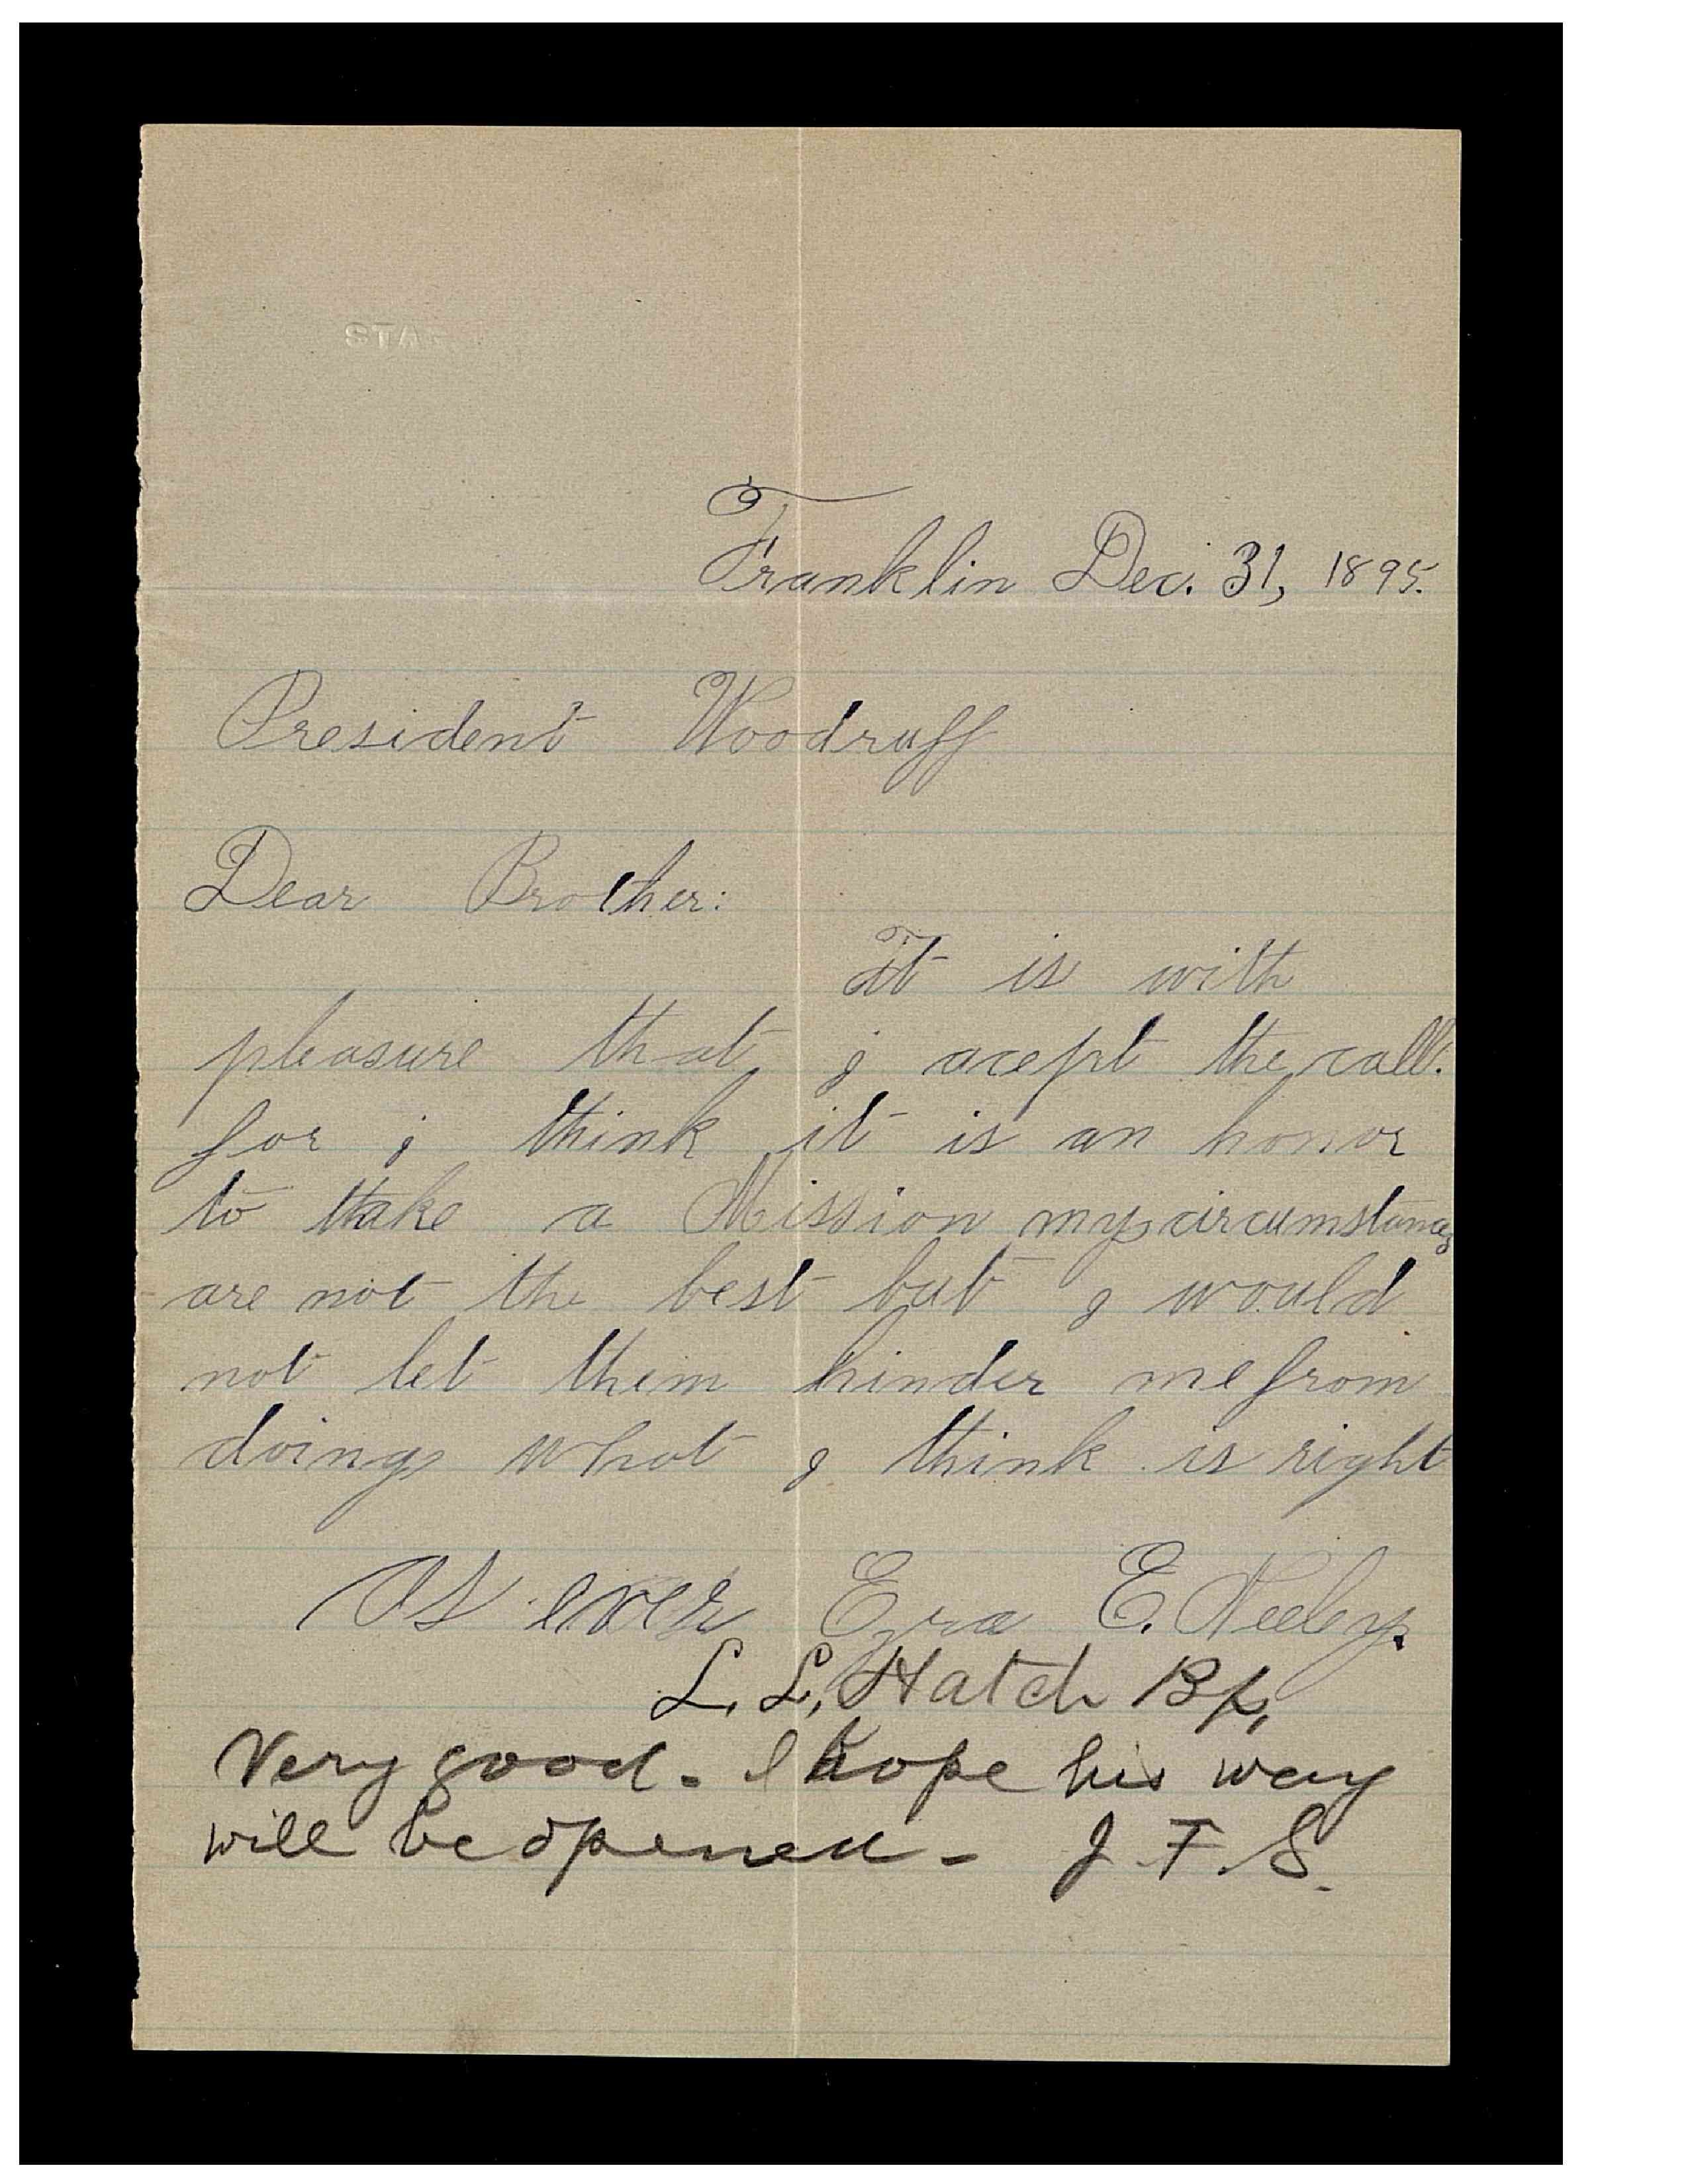 STA
Franklin Dec. 31, 1895.
President Woodruff
Dear Brother:
It is with
pleasure that i acept the call.
for i think it is an honor
to take a Mission my circumstances
are not the best but i would
not let them hinder me from
doing what i think is right
As ever Ezra E. Neeley.
L. L. Hatch Bp.
Very good. I hope his way
will be opened - J. F. S.